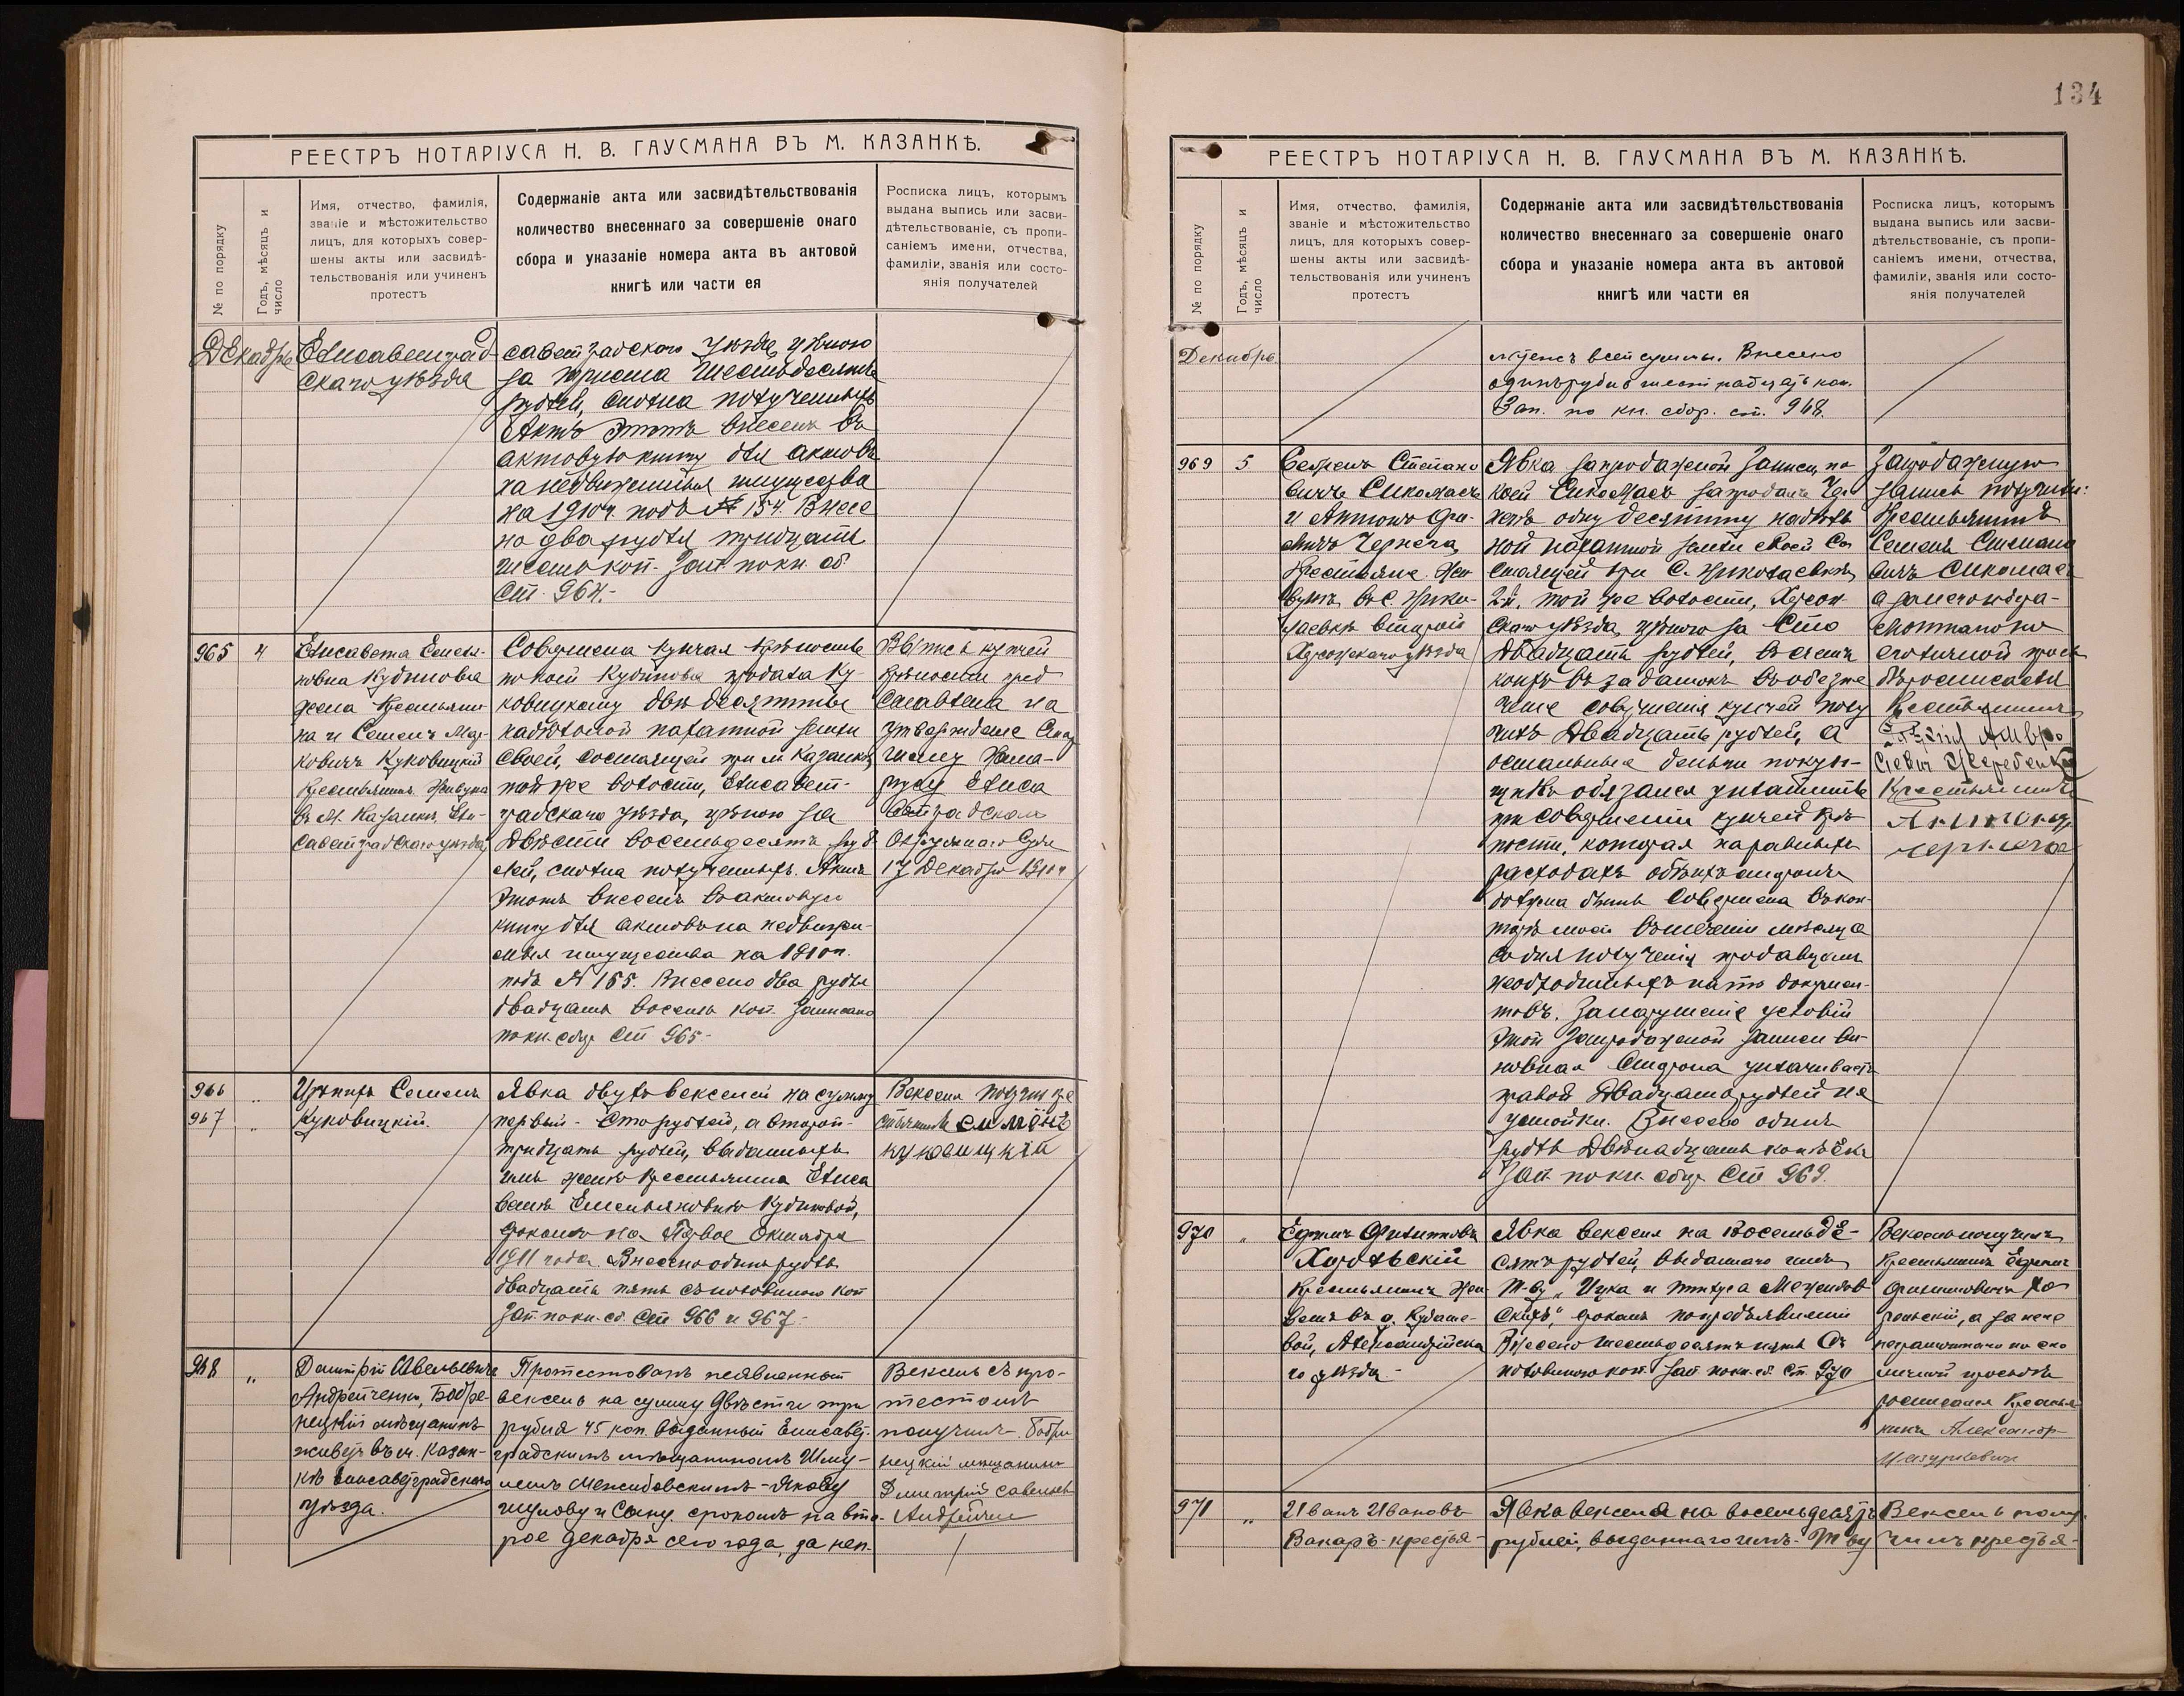 РЕЕСТРЪ НОТАРІУСА Н. В. ГАУСМАНА ВЪ М. КАЗАНКѢ.
№ по порядку
Годъ, мѣсяцъ и
число
Имя, отчество, фамилія,
званіе и мѣстожительство
лицъ, для которыхъ совер-
шены акты или засвидѣ-
тельствованія или учиненъ
протестъ
Содержаніе акта или засвидѣтельствованія
количество внесеннаго за совершеніе онаго
сбора и указаніе номера акта въ актовой
книгѣ или части ея
Росписка лицъ, которымъ
выдана выпись или засви-
дѣтельствованіе, съ пропи-
саніемъ имени, отчества,
фамиліи, званія или состо-
янія получателей
Декабрь
Елисаветград-
скаго уѣзда
саветградскаго уѣзда, цѣною
за триста шестьдесятъ
рублей, сполна полученныхъ
Актъ этотъ внесенъ въ
актовую книгу для актовъ
на недвижимыя имущества
на 1910 г. подъ № 154. Внесе
но два рубля тридцать
шесть коп. Зап. по кн. сб.
ст. 964.-
965
4
Елисавета Емелья-
новна Кудинова
жена крестьяни-
на и Семенъ Мар-
ковичъ Куковицкій
крестьянинъ. Живутъ
въ м. Казанкѣ, Ели-
саветградскаго уѣзда,
Совершена купчая крѣпость
по коей Кудинова продала Ку-
ковицкому двѣ десятины
надѣльной пахатной земли
своей, состоящей при м. Казанкѣ,
той же волости, Елисавет-
градскаго уѣзда, цѣною за
двѣсти восемьдесятъ руб-
лей, сполна полученныхъ. Актъ
этотъ внесенъ въ актовую
книгу для актовъ на недвижи-
мыя имущества на 1910 г.
подъ № 155. Внесено два рубля
двадцать восемь коп. Записано
по кн. сбор. ст. 965.-
Выпись купчей
крѣпости пред
ставлена на
утвержденіе Стар
шему Нота-
ріусу Елиса
ветградскаго
Окружнаго Суда
17 Декабря 1910 г.
966
967
"
"
Цѣнитъ Семенъ
Куковицкій.
Явка двухъ векселей на сумму
первый - сто рублей, а второй -
тридцать рублей, выданныхъ
имъ женѣ крестьянина Елиса
ветѣ Емельяновнѣ Кудиновой,
срокомъ на первое Октября
1911 года. Внесено одинъ рубль
двадцать пять съ половиною коп.
Зап. по кн. сб. ст. 966 и 967.-
Векселя получилъ кре
стьянинъ Семенъ
Куковицкій
968
"
Дмитрій Савельевичъ
Андрейченко, Бобри-
нецкій мѣщанинъ
живетъ въ м. Казан-
кѣ Елисаветградскаго
уѣзда.
Протестованъ неявленный
вексель на сумму двѣсти три
рубля 45 коп. выданный Елисавет-
градскимъ мѣщаниномъ Шму-
лемъ Межибовскимъ - Якову
Шулову и Сыну срокомъ на вто-
рое декабря сего года, за неп-
Вексель съ про-
тестомъ
получилъ - Бобри
нецкій мѣщанинъ
Дмитрій Савельев
Андрейченко
134
РЕЕСТРЪ НОТАРІУСА Н. В. ГАУСМАНА ВЪ М. КАЗАНКѢ.
№ по порядку
Годъ, мѣсяцъ и
число
Имя, отчество, фамилія,
званіе и мѣстожительство
лицъ, для которыхъ совер-
шены акты или засвидѣ-
тельствованія или учиненъ
протестъ
Содержаніе акта или засвидѣтельствованія
количество внесеннаго за совершеніе онаго
сбора и указаніе номера акта въ актовой
книгѣ или части ея
Росписка лицъ, которымъ
выдана выпись или засви-
дѣтельствованіе, съ пропи-
саніемъ имени, отчества,
фамиліи, званія или состо-
янія получателей
Декабрь
латежъ всей суммы. Внесено
одинъ рубль шестнадцать коп.
Зап. по кн. сбор. ст. 968.
969
5
Семенъ Степано
вичъ Сикомасъ
и Антонъ
Чернега,
крестьяне. Жи
вутъ въ с. Нико-
лаевкѣ Второй
Херсонскаго уѣзда
Явка запродажной записи, по
коей Сикомасъ запродалъ Чер
негѣ одну десятину надѣль
ной пахатной земли своей со
стоящей при с. Николаевкѣ
2-й, той же волости, Херсон-
скаго уѣзда, цѣною за сто
двадцать рублей, въ счетъ
коихъ въ задатокъ въ обезпе
ченіе совершенія купчей полу
чилъ двадцать рублей, а
остальныя деньги покуп-
щикъ обязался уплатить
при совершеніи купчей крѣ-
пости, которая на равныхъ
расходахъ обѣихъ сторонъ
должна быть совершена въ кон-
торѣ моей въ теченіи мѣсяца
со дня полученія продавцомъ
необходимыхъ на то докумен-
товъ. За нарушеніе условій
этой запродажной записи ви-
новная сторона уплачиваетъ
правой двадцать рублей не
устойки. Внесено одинъ
рубль двѣнадцать копѣекъ
Зап. по кн. сбор. ст. 969.
Запродажную
запись получили:
крестьянинъ
Семенъ Степано
вичъ Сикомасъ
а за него негра-
мотнаго по
его личной прось
бѣ росписался
крестьянинъ
Жеребенко
Крестьянинъ
Антонъ
Чернега
970
"
Ефимъ Филипповъ
Хорольскій
крестьянинъ жи
ветъ въ д. Кудаше-
вой, Александрійска
го уѣзда.-
Явка векселя на восемьде-
сятъ рублей, выданнаго имъ
Т-ву "Ицка и Пинхуса Межибов
скихъ", срокомъ по предъявленіи
Внесено шестьдесятъ пять съ
половиною коп. Зап. по кн. сб. ст. 970
Вексель получилъ
крестьянинъ Ефимъ
Филипповичъ Хо
рольскій, а за него
неграмотнаго по его
личной просьбѣ
росписался крестья-
нинъ Александр
Мазуркевичъ
971
"
Иванъ Ивановъ
Вакаръ - крестья-
Явка векселя на восемьдесятъ
рублей, выданнаго имъ - Т-ву
Вексель полу-
чилъ крестья-